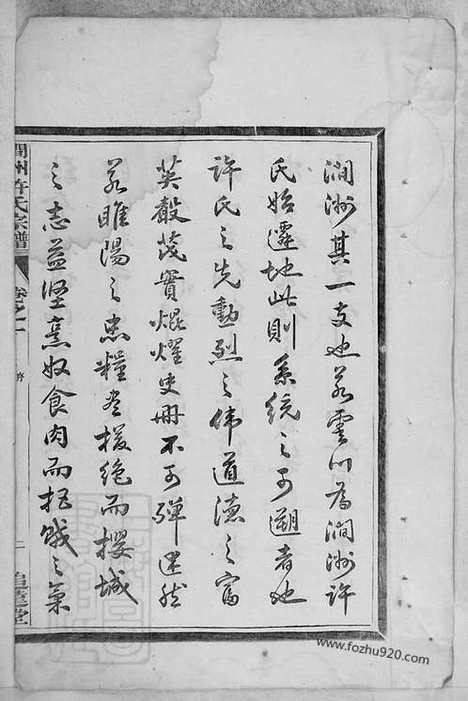 澗洲其一支也若雲川為澗洲許
氏始遷地此則系統之可遡者也
許氏之先勳烈之偉道德之富
英聲茂實焜耀史冊不可殫述然
若睢陽之忠糧盡援絕而攖城
之志益堅烹奴食肉而拒賊之氣
澗州許氏宗譜
卷之一
序
追遠堂
www.fozhu920.com